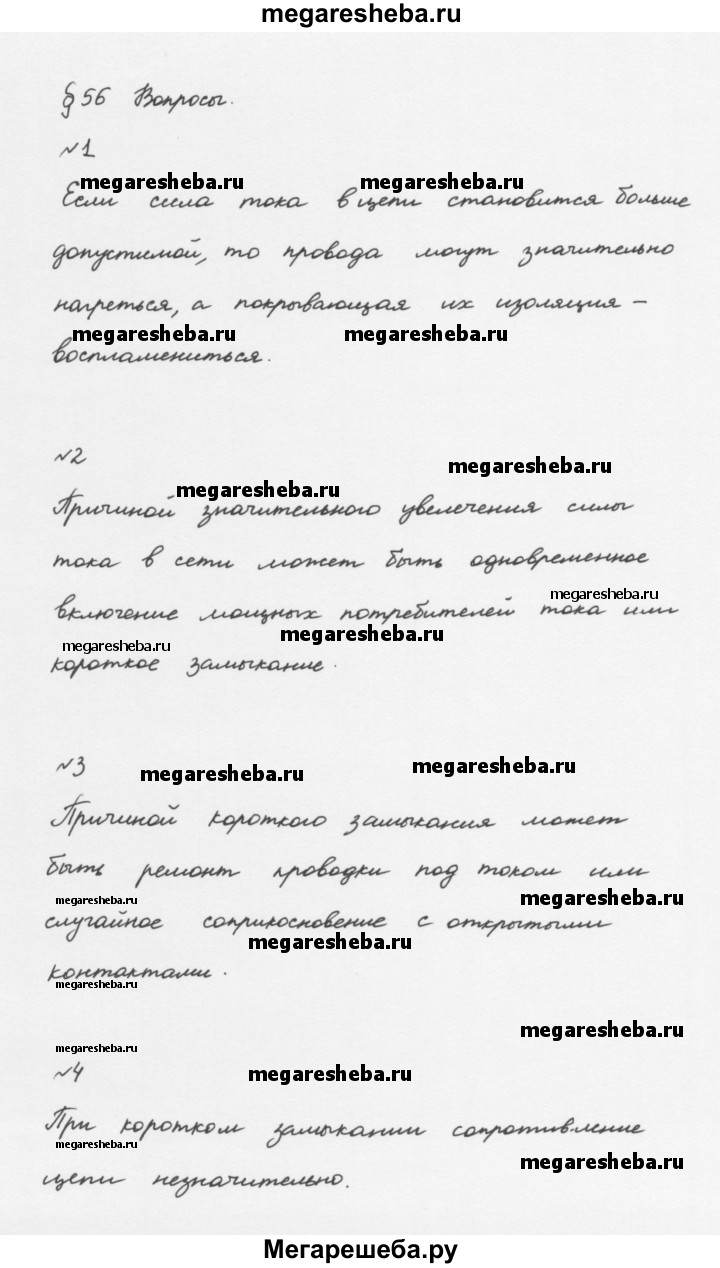 megaresheba.ru
§ 56 Вопросы.
№1
megaresheba.ru megaresheba.ru
Если сила тока в цепи становится больше
допустимой, то провода могут значительно
нагреться, а покрывающая их изоляция –
megaresheba.ru megaresheba.ru
воспламениться.
№2
megaresheba.ru
megaresheba.ru
Причиной значительного увелечения силы
тока в сети может быть одновременное
megaresheba.ru
включение мощных потребителей тока или
megaresheba.ru
megaresheba.ru
короткое замыкание.
№3
megaresheba.ru megaresheba.ru
Причиной короткого замыкания может
быть ремонт проводки под током или
megaresheba.ru megaresheba.ru
случайное соприкосновение с открытыми
megaresheba.ru
контактами.
megaresheba.ru
megaresheba.ru
megaresheba.ru
№4
megaresheba.ru
При коротком замыкании сопротивление
megaresheba.ru
megaresheba.ru
цепи незначительно.
Мегарешеба.ру